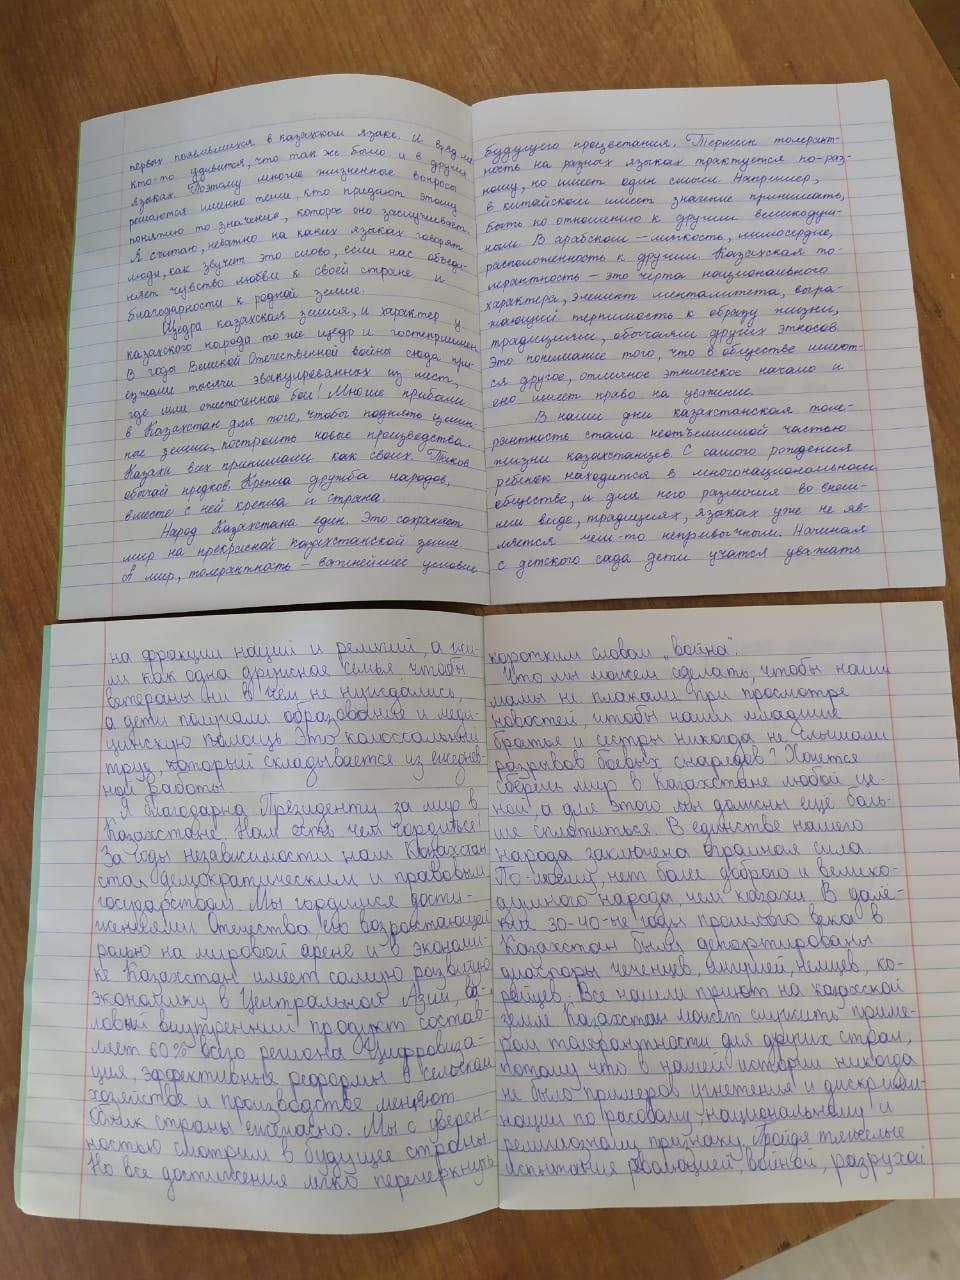 первых появившихся в казахском языке. И вряд ли
кто-то удивится, что так же было и в других
языках. Поэтому многие жизненные вопросы
решаются именно теми, кто придают этому
понятию то значение, которое оно заслуживает.
Я считаю, неважно на каких языках говорят
люди, как звучит это слово, если нас объеди-
няет чувство любви к своей стране и
благодарности к родной земле.
Щедра казахская земля, и характер у
казахского народа то же щедр и гостеприимен
В годы Великой Отечественной войны сюда при-
езжали тысячи эвакуированных из мест,
где шли ожесточенные бои! Многие прибыли
в Казахстан для того, чтобы поднять целин-
ные земли, построить новые производства.
Казахи всех принимали как своих. Таков
обычай предков. Крепла дружба народов,
вместе с ней крепла и страна.
Народ Казахстана един. Это сохраняет
мир на прекрасной казахстанской земле
А мир, толерантность – важнейшее условие
будущего процветания. Термин толерант-
ность на разных языках трактуется по-раз-
ному, но имеет один смысл. Например,
в китайском имеет значение принимать,
быть по отношению к другим великодуш-
ным. В арабском – мягкость, милосердие,
расположенность к другим. Казахская то-
лерантность – это черта национального
характера, элемент менталитета, выра-
жающий терпимость к образу жизни,
традициям, обычаям других этносов.
Это понимание того, что в обществе имеют-
ся другое, отличное этническое начало и
оно имеет право на уважение.
В наши дни казахстанская толе-
рантность стала неотъемлемой частью
жизни казахстанцев. С самого рождения
ребёнок находится в многонациональном
обществе, и для него различия во внеш-
нем виде, традициях, языках уже не яв-
ляется чем-то непривычным. Начиная
с детского сада дети учатся уважать
на фракции наций и религий, а жи-
ли как одна дружная семья чтобы
ветераны ни в чём не нуждались,
а дети получали образование и меди-
цинскую помощь. Это колоссальный
труд, который складывается из ежеднев-
ной работы
Я благодарна Президенту за мир в
Казахстане. Нам есть чем гордиться!
За годы независимости наш Казахстан
стал демократическим и правовым
государством. Мы гордимся дости-
жениями Отечества, его возрастающей
ролью на мировой арене и в экономи-
ке Казахстан имеет самую развитую
экономику в Центральной Азии, ва-
ловый внутренний продукт состав-
ляет 60% всего региона Цифровиза-
ция, эффективные реформы в сельском
хозяйстве и производстве меняют
облик страны ежечасно. Мы с уверен-
ностью смотрим в будущее страны
Но все достижения легко перечеркнуть
коротким словом „война".
Что мы можем сделать, чтобы наши
мамы не плакали при просмотре
новостей, чтобы наши младшие
братья и сёстры никогда не слышали
разрывов боевых снарядов? Хочется
сберечь мир в Казахстане любой це-
ной, а для этого мы должны ещё боль-
ше сплотиться. В единстве нашего
народа заключена огромная сила
По-моему, нет более доброго и велико-
душного народа, чем казахи В далё-
кие 30-40-ые годы прошлого века в
Казахстан были депортированы
диаспоры чеченцев, ингушей, немцев, ко-
рейцев. Все нашли приют на казахской
земле Казахстан может служить приме-
ром толерантности для других стран,
потому что в нашей истории никогда
не было примеров угнетения и дискрими-
нации по расовому, национальному и
религиозному признаку. Пройдя тяжелые
испытания, революцией, войной, разрухой